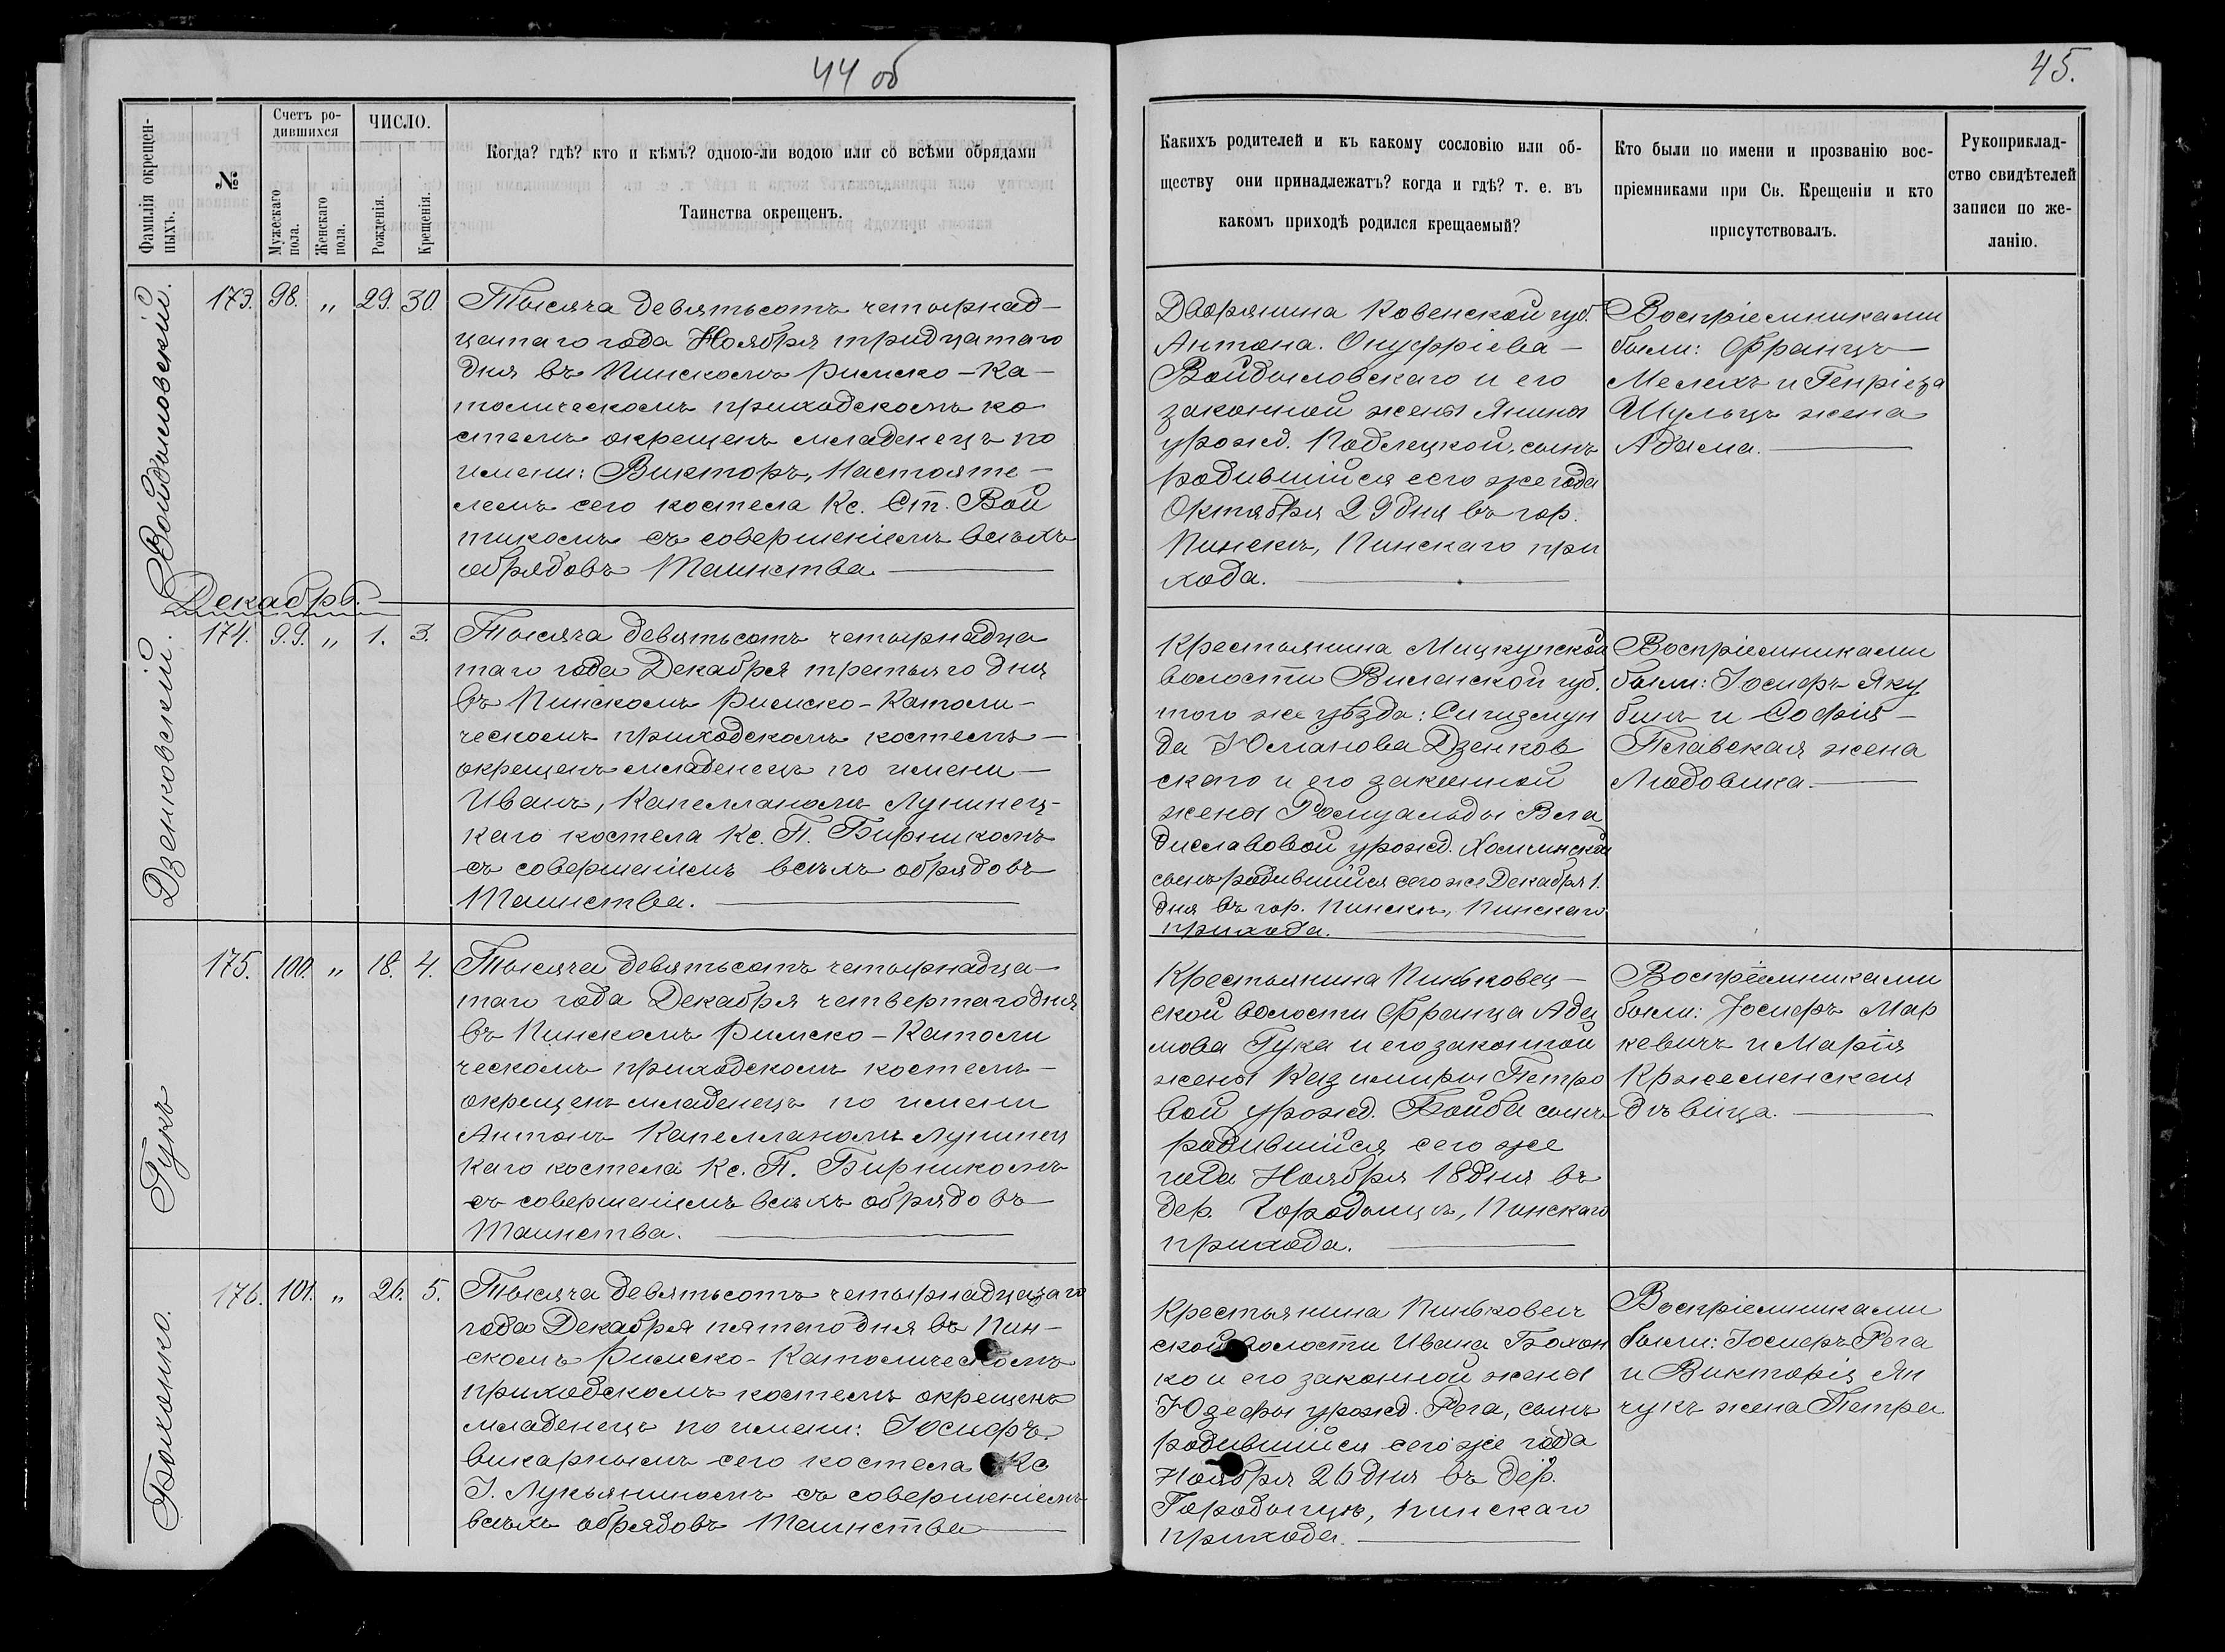 44 об
Фамилія окрещен-
ныхъ.
№
Счетъ ро-
дившихся
Мужескаго
пола.
Женскаго
пола.
ЧИСЛО.
Рожденія.
Крещенія.
Когда? гдѣ? кто и кѣмъ? одною-ли водою или со всѣми обрядами
Таинства окрещенъ.
Войдыловскій.
173. 98. „ 29. 30.
Тысяча девятьсотъ четырнад-
цатаго года Ноября тридцатаго
дня въ Пинскомъ Римско-Ка-
толическомъ приходскомъ ко
стелѣ окрещенъ младенецъ по
имени: Викторъ, Настояте-
лемъ сего костела Кс. Ст. Вой
тикомъ съ совершеніемъ всѣхъ
обрядовъ Таинства.
Декабрь.
Дзенковскій.
174. 99. „ 1. 3.
Тысяча девятьсотъ четырнадца
таго года Декабря третьяго дня
въ Пинскомъ Римско-Католи-
ческомъ приходскомъ костелѣ-
окрещенъ младенецъ по имени-
Иванъ, Капелланомъ Лунинец-
каго костела Кс. П. Бирникомъ
съ совершеніемъ всѣхъ обрядовъ
Таинства.
Гукъ
175. 100. „ 18. 4.
Тысяча девятьсотъ четырнадца-
таго года Декабря четвертаго дня
въ Пинскомъ Римско-Католи
ческомъ приходскомъ костелѣ-
окрещенъ младенецъ по имени
Антонъ Капелланомъ Лунинец
каго костела Кс. П. Бирникомъ
съ совершеніемъ всѣхъ обрядовъ
Таинства.
Бохонко.
176. 101. „ 26. 5.
Тысяча девятьсотъ четырнадцатаго
года Декабря пятаго дня въ Пин-
скомъ Римско-Католическомъ
приходскомъ костелѣ окрещенъ
младенецъ по имени: Іосифъ.
викарнымъ сего костела Кс
І. Лукьяниномъ съ совершеніемъ
всѣхъ обрядовъ Таинства
45.
Какихъ родителей и къ какому сословію или об-
ществу они принадлежатъ? когда и гдѣ? т. е. въ
какомъ приходѣ родился крещаемый?
Кто были по имени и прозванію вос-
пріемниками при Св. Крещеніи и кто
присутствовалъ.
Рукоприклад-
ство свидѣтелей
записи по же-
ланію.
Дворянина Ковенской губ.
Антона. Онуфріева-
Войдыловскаго и его
законной жены Янины
урожд. Подлецкой, сынъ
родившійся сего же года
Октября 29 дня въ гор.
Пинскѣ, Пинскаго при
хода.
Воспріемниками
были: Францъ
Мелехъ и Генріета
Шульцъ жена
Адама.
Крестьянина Мицкунской
волости Виленской губ.
того же уѣзда: Сигизмун
да Юліанова Дзенков
скаго и его законной
жены Ромуальды Вла
диславовой урожд. Холминской
сынъ родившійся сего же Декабря 1.
дня въ гор. Пинскѣ, Пинскаго
прихода.
Воспріемниками
были: Іосифъ Яку
бикъ и Софія-
Плавская жена
Людовика.
Крестьянина Пинковец-
ской волости Франца Ада
мова Гука и его законной
жены Казимиры Петро
вой урожд. Бойба сынъ
родившійся сего же
года Ноября 18 дня въ
дер. Городыщѣ, Пинскаго
прихода.
Воспріемниками
были: Іосифъ Мар
кевичъ и Марія
Кржеменская
дѣвица.
Крестьянина Пинковеч
ской волости Ивана Бохон
ко и его законной жены
Юзефы урожд. Рега, сынъ
родившійся сего же года
Ноября 26 дня въ дер.
Городыщѣ, Пинскаго
прихода.
Воспріемниками
были: Іосифъ Рега
и Викторія Ян
чукъ жена Петра.